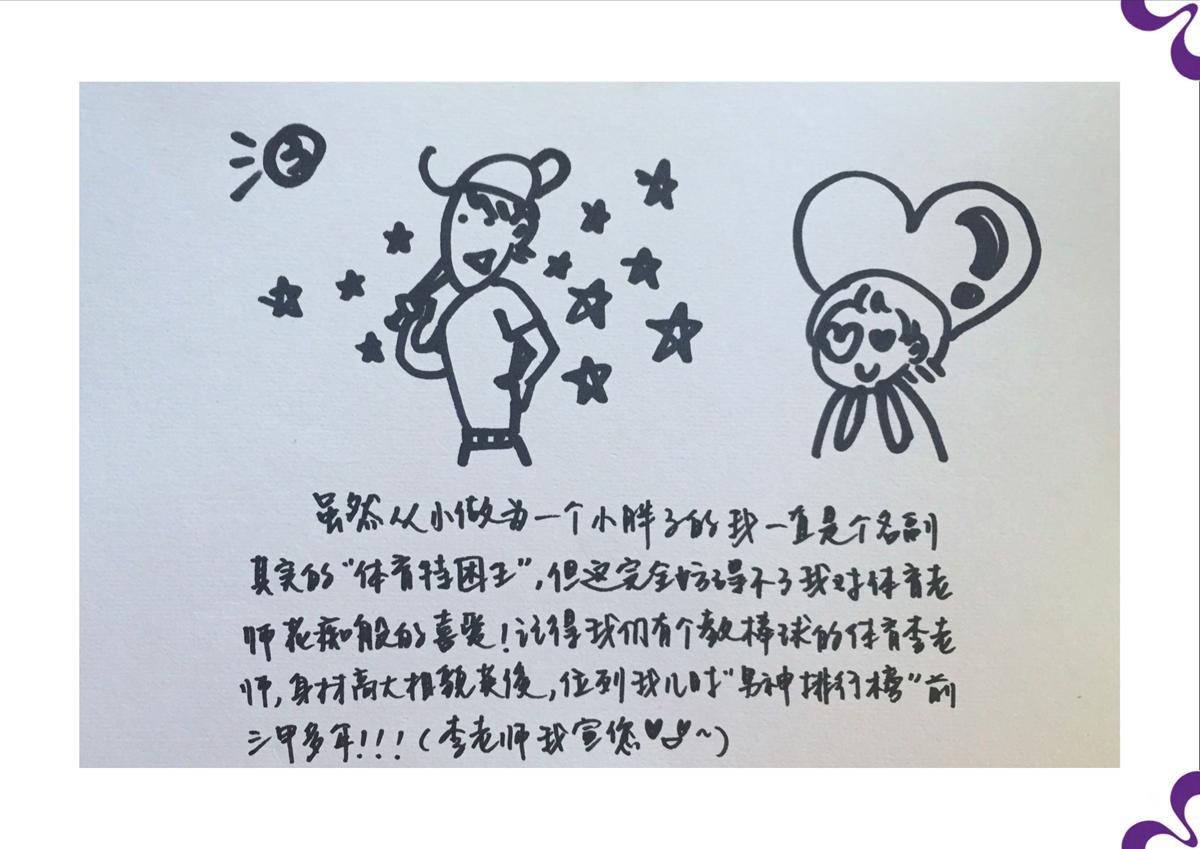 虽然从小做为一个小胖子的我一直是个名副
其实的“体育特困生”,但这完全妨碍不了我对体育老
师花痴般的喜爱!记得我们有个教棒球的体育李老
师,身材高大相貌英俊,位列我儿时“男神排行榜”前
三甲多年!!!(李老师我宣您♥~)